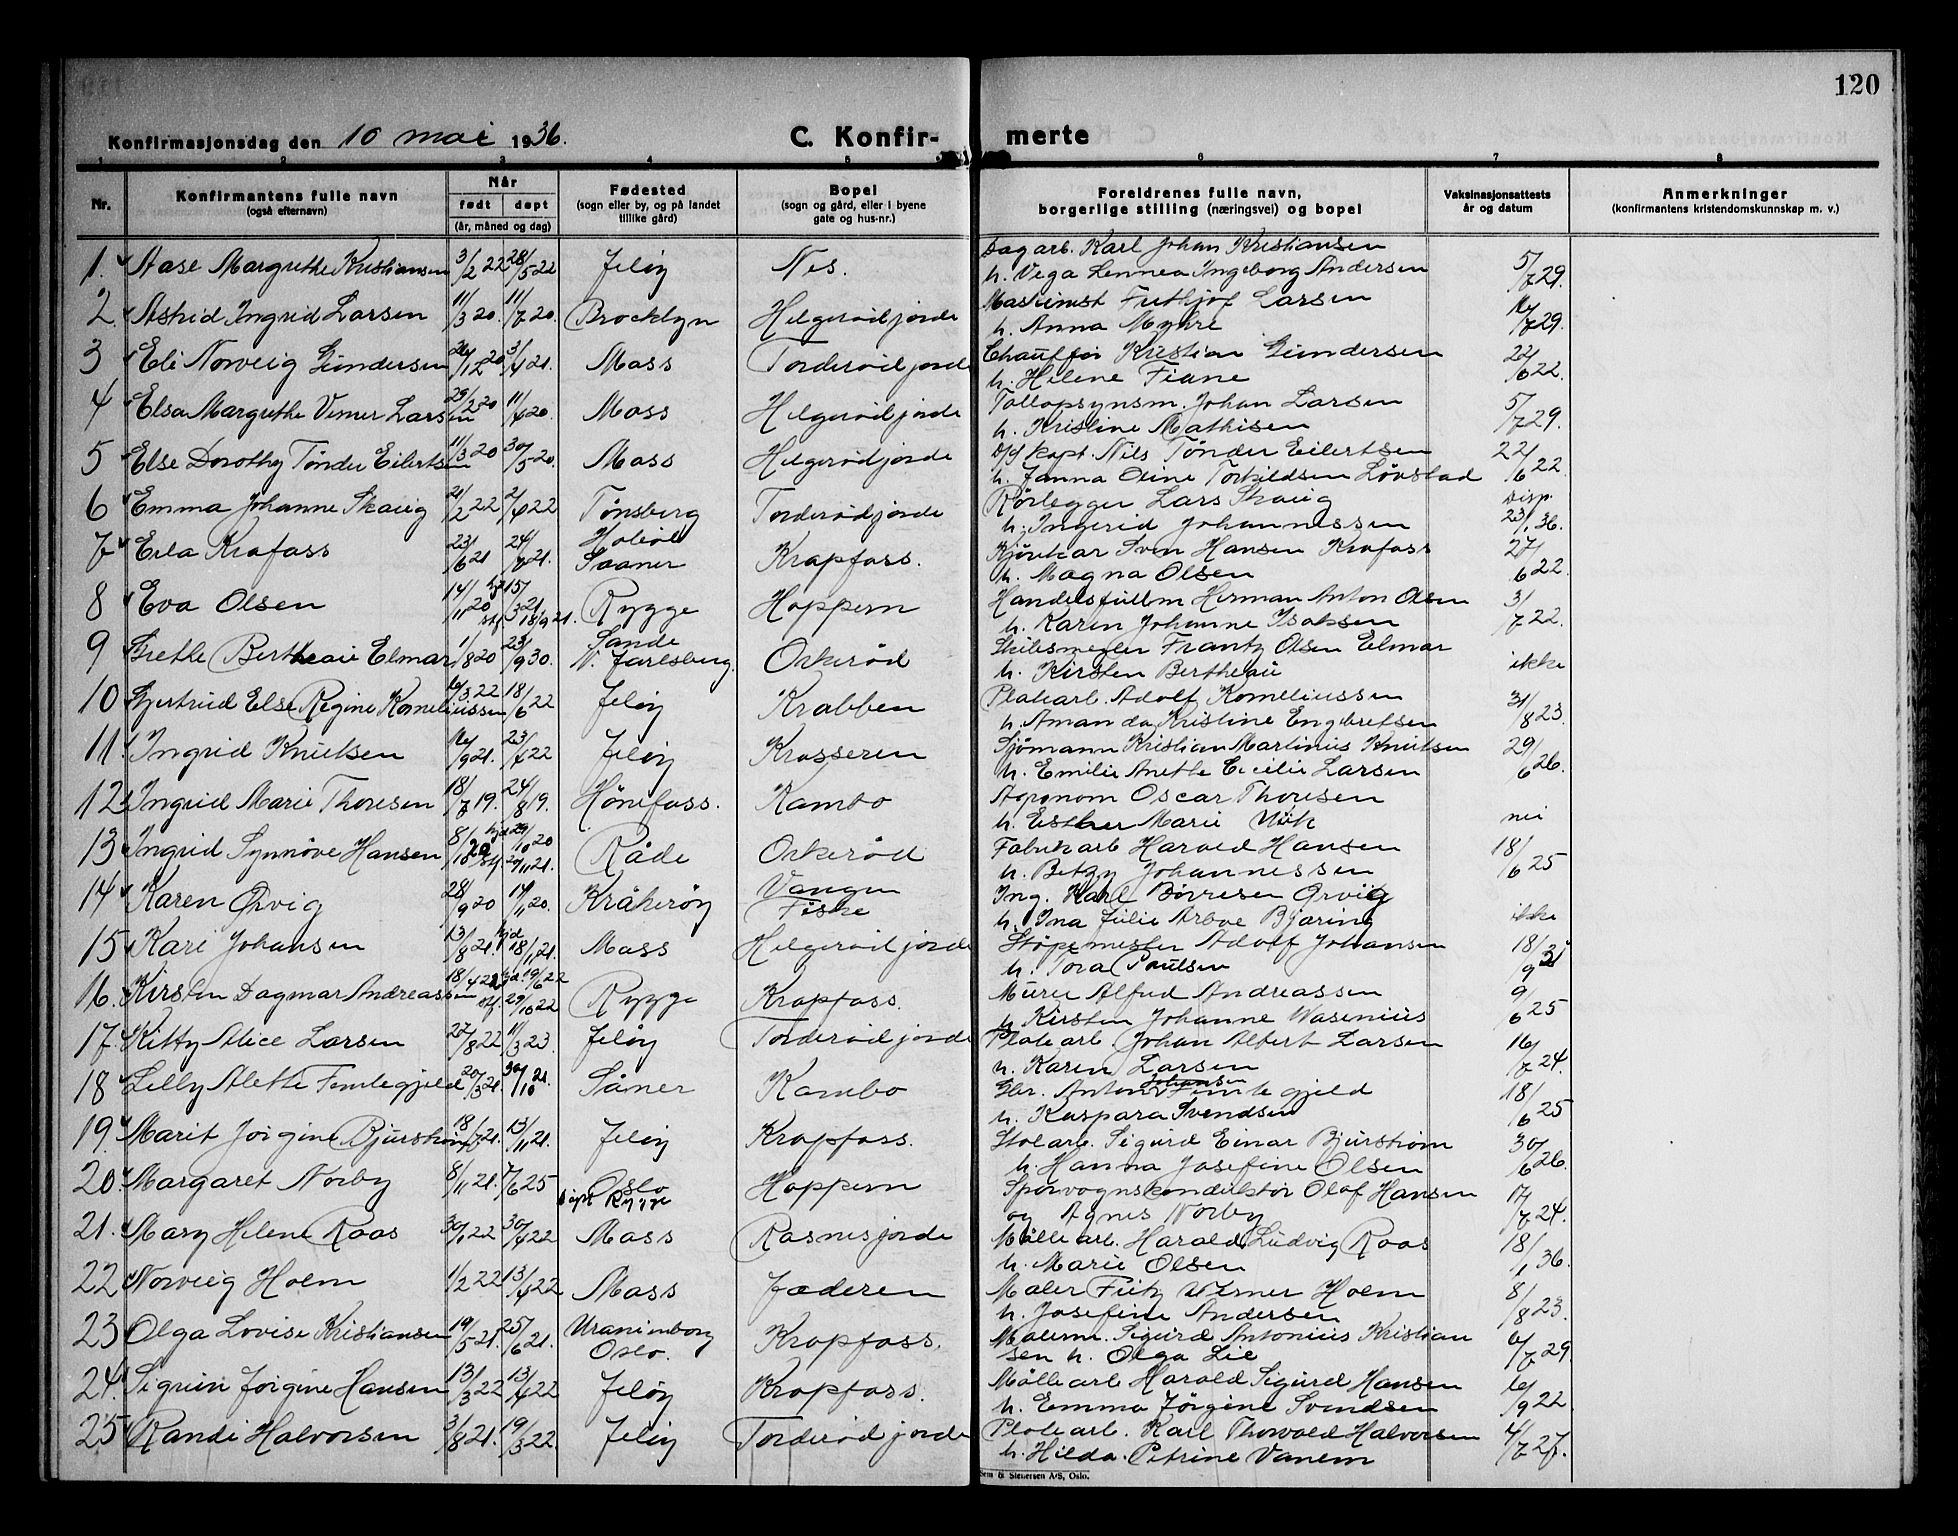 120
Konfirmasjonsdag den 10 mai 1936.
C. Konfirmerte
1 2 3 4 5 6 7 8
Nr. Konfirmantens fulle navn (også efternavn) Når født døpt (år, måned og dag) Fødested (sogn eller by, og på landet tillike gård) Bopel (sogn og gård, eller i byene gate og hus-nr.) Foreldrenes fulle navn, borgerlige stilling (næringsvei) og bopel Vaksinasjonsattests år og datum Anmerkninger (konfirmantens kristendomskunnskap m. v.)
1. Aase Margrethe Kristiansen 3/2 22 28/5 22 Jeløy Nes. Dagarb. Karl Johan Kristiansen
h. Vega Lennea Ingeborg Andersen 5/7 29.
2. Astrid Ingrid Larsen 11/3 20. 11/7 20. Brocklyn Helgerødjorde Maskinist Frithjof Larsen
h. Anna Myhre 16/7 29.
3 Eli Norveig Gundersen 26/12 20 3/4 21. Moss Torderødjorde Chauffør Kristian Gundersen
h. Helene Fiane 22/6 22.
4 Elsa Margrethe Verner Larsen 29/2 20 11/4 20. Moss Helgerødjorde Tollopsynsm. Johan Larsen
h. Kristine Mathisen 5/7 29.
5 Else Dorothy Tønder Eilertsen 11/3 20 30/5 20. Moss Helgerødjorde D/S kapt. Nils Tønder Eilertsen
h. Janna Oline Torkildsen Løvstad 22/6 22.
6 Emma Johanne Skaug 21/2 22 2/4 22 Tønsberg Torderødjorde Rørlegger Lars Skaug
h. Ingerid Johannessen disp. 23/1 36.
7 Erla Krafoss 23/6 21 24/7 21. Hobøl Saaner Krapfoss. Kjørekar Sven Hansen Krafoss
h. Magna Olsen 27/6 22.
8 Eva Olsen 14/11 20 hjd 15/3 21 stf. 18/9 21. Rygge Hoppern Handelsfullm Herman Anton Olsen
h. Karen Johanne Isaksen 3/7 22.
9 Grethe Bertheau Elmar 1/8 20 23/9 30. Sande N. Jarlsberg. Orkerød Skibsmegler Frantz Olsen Elmar
h. Kirsten Bertheau ikke
10 Gjertrud Else Regine Korneliussen 16/3 22 18/6 22 Jeløy Krabben Platearb. Adolf Korneliussen
h. Amanda Kristine Engebretsen 31/8 23.
11. Ingrid Knutsen 16/9 21. 23/7 22 Jeløy Krosseren Sjømann Kristian Martinius Knutsen
h. Emilie Anette Cecilie Larsen 29/6 26.
12. Ingrid Marie Thoresen 18/7 19. 24/8 19. Hønefoss. Kambo Agronom Oscar Thoresen
h. Esther Marie nei
13 Ingrid Synnøve Hansen 8/10 20 hjd 29/10 20 stf. 20/11 21. Råde Orkerød Fabrikarb Harald Hansen
h. Betzy Johannessen 18/6 25
14 Karen Ørvig 28/9 20 14/11 20. Kråkerøy Vangen Fiske Ing. Karl Børresen Ørvig
h. Ina Julie Arboe Bjøring ikke
15 Kari Johansen 13/8 21. hjd 18/11 21. Moss Helgerødjorde Støpemester Adolf Johansen
h. Tora Paulsen 18/9 31
16. Kirsten Dagmar Andreassen 18/4 22 hjd. 19/6 22 stf. 29/10 22 Rygge Krapfoss. Murer Alfred Andreassen
h. Kirsten Johanne Wasenius 9/6 25
17. Kitty Alice Larsen 27/8 22 11/3 23. Jeløy Torderødjorde Platearb. Johan Albert Larsen
h. Karen Larsen 16/7 24.
18 Lilly Alette Femtegjeld 20/3 21. 30/10 21. Såner Kambo Gbr. Anton Johansen Femtegjeld
h. Kaspara Svendsen 18/6 25
19. Marit Jørgine Bjurstrøm 18/7 21. 13/11 21. Jeløy Krapfoss. Stolarb. Sigurd Einar Bjurstrøm
h. Hanna Josefine Olsen 30/6 26.
20. Margaret Norby 8/11 21. 7/6 25 Oslo døpt Rygge Hoppern Sporvognskonduktør Olaf Hansen
og Agnes Norby 17/7 24.
21. Mary Helene Roos 30/1 22 30/4 22 Moss Rosnesjorde Møllearb. Harald Ludvig Roos
h. Marie Olsen 18/1 36.
22 Norveig Holm 1/2 22 13/4 22 Moss Jæderen Maler Fritz Werner Holm
h. Josefine Andersen 8/8 23.
23 Olga Lovise Kristiansen 19/5 21. 25/6 21. Uranienborg Oslo. Krapfoss. Malerm. Sigurd Antonius Kristian
sen h. Olga Lie 6/7 29.
24. Sigrun Jørgine Hansen 13/3 22 13/4 22 Jeløy Krapfoss. Møllearb Harald Sigurd Hansen
h. Emma Jørgine Svendsen 16/9 22.
25 Randi Halvorsen 3/8 21. 19/3 22. Jeløy Torderødjorde Platearb. Karl Thorvald Halvorsen
h. Hilda Petrine Vanem 4/7 27.
Sem & Stenersen A/S, Oslo.